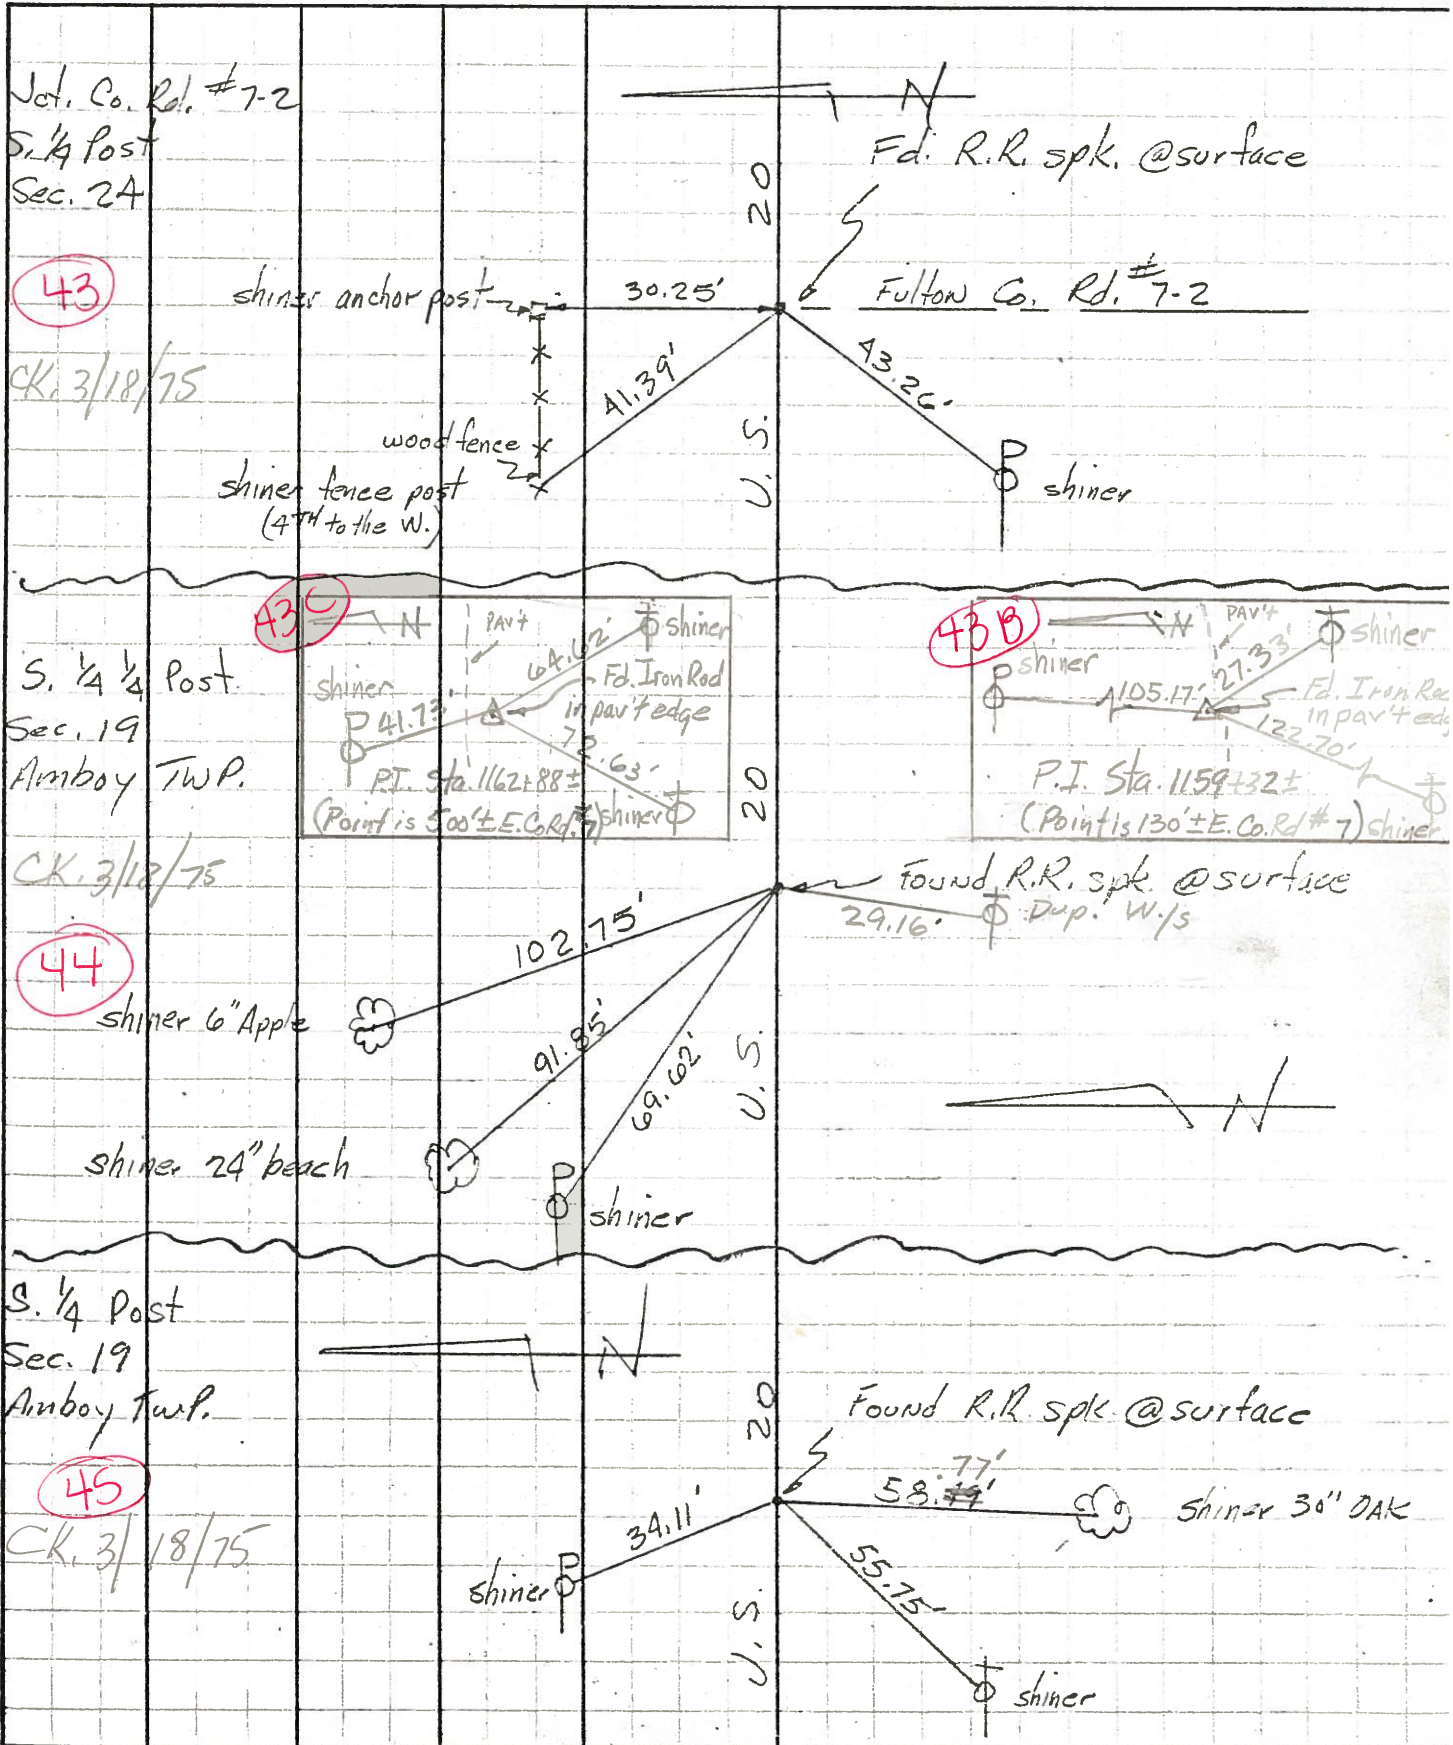 Jct. Co. Rd. #7-2
S. 1/4 Post
Sec. 24
43
CK. 3/18/75
N
Fd. R.R. spk. @surface
U.S. 20
shiner anchor post
30.25'
Fulton Co. Rd. #7-2
41.39'
43.26'
wood fence
shiner fence post
(4TH to the W.)
P
shiner
43C
N
PAV't
shiner
64.62'
shiner
Fd. Iron Rod
in pav't edge
P
41.73'
72.63'
P.I. Sta. 1162+88±
(Point is 500'± E. Co Rd. #7)
shiner
43B
N
PAV't
shiner
shiner
27.33'
P
105.17'
Fd. Iron Rod
in pav't edge
122.70'
P.I. Sta. 1159+32±
(Point is 130'± E. Co. Rd #7)
shiner
S. 1/4 1/4 Post
Sec. 19
Amboy TWP.
CK. 3/18/75
44
U.S. 20
Found R.R. spk. @surface
29.16'
Dup. W/s
102.75'
shiner 6" Apple
91.85'
69.62'
shiner 24" beach
P
shiner
N
S. 1/4 Post
Sec. 19
Amboy TwP.
45
CK. 3/18/75
N
U.S. 20
Found R.R. spk @surface
.77'
58.49'
shiner 30" OAK
34.11'
P
shiner
55.75'
shiner